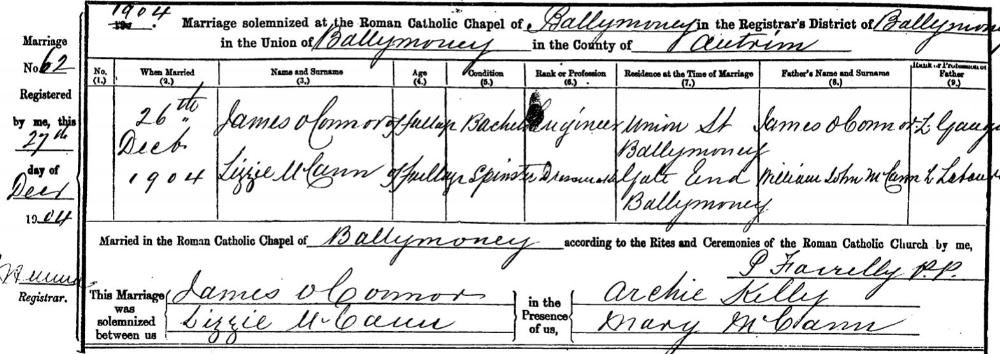 1904
190 . Marriage solemnized at the Roman Catholic Chapel of Ballymoney in the Registrar's District of Ballymoney
in the Union of Ballymoney in the County of Antrim
Marriage
No. 62
Registered
by me, this
27th
day of
Decr
1904
Registrar.
No. (1.) When Married (2.) Name and Surname (3.) Age (4.) Condition (5.) Rank or Profession (6.) Residence at the Time of Marriage (7.) Father's Name and Surname (8.) Rank or Profession of Father (9.)
26th James O Connor of full age Bachelor Engineer Union St James O Connor
Decb Ballymoney
1904 Lizzie McCann of full age Spinster Dressmaker Gate End William John McCann Labourer
Ballymoney
Married in the Roman Catholic Chapel of Ballymoney according to the Rites and Ceremonies of the Roman Catholic Church by me,
P Farrelly P.P.
This Marriage was solemnized between us James O Connor in the Presence of us, Archie Kelly
Lizzie McCann Mary McCann